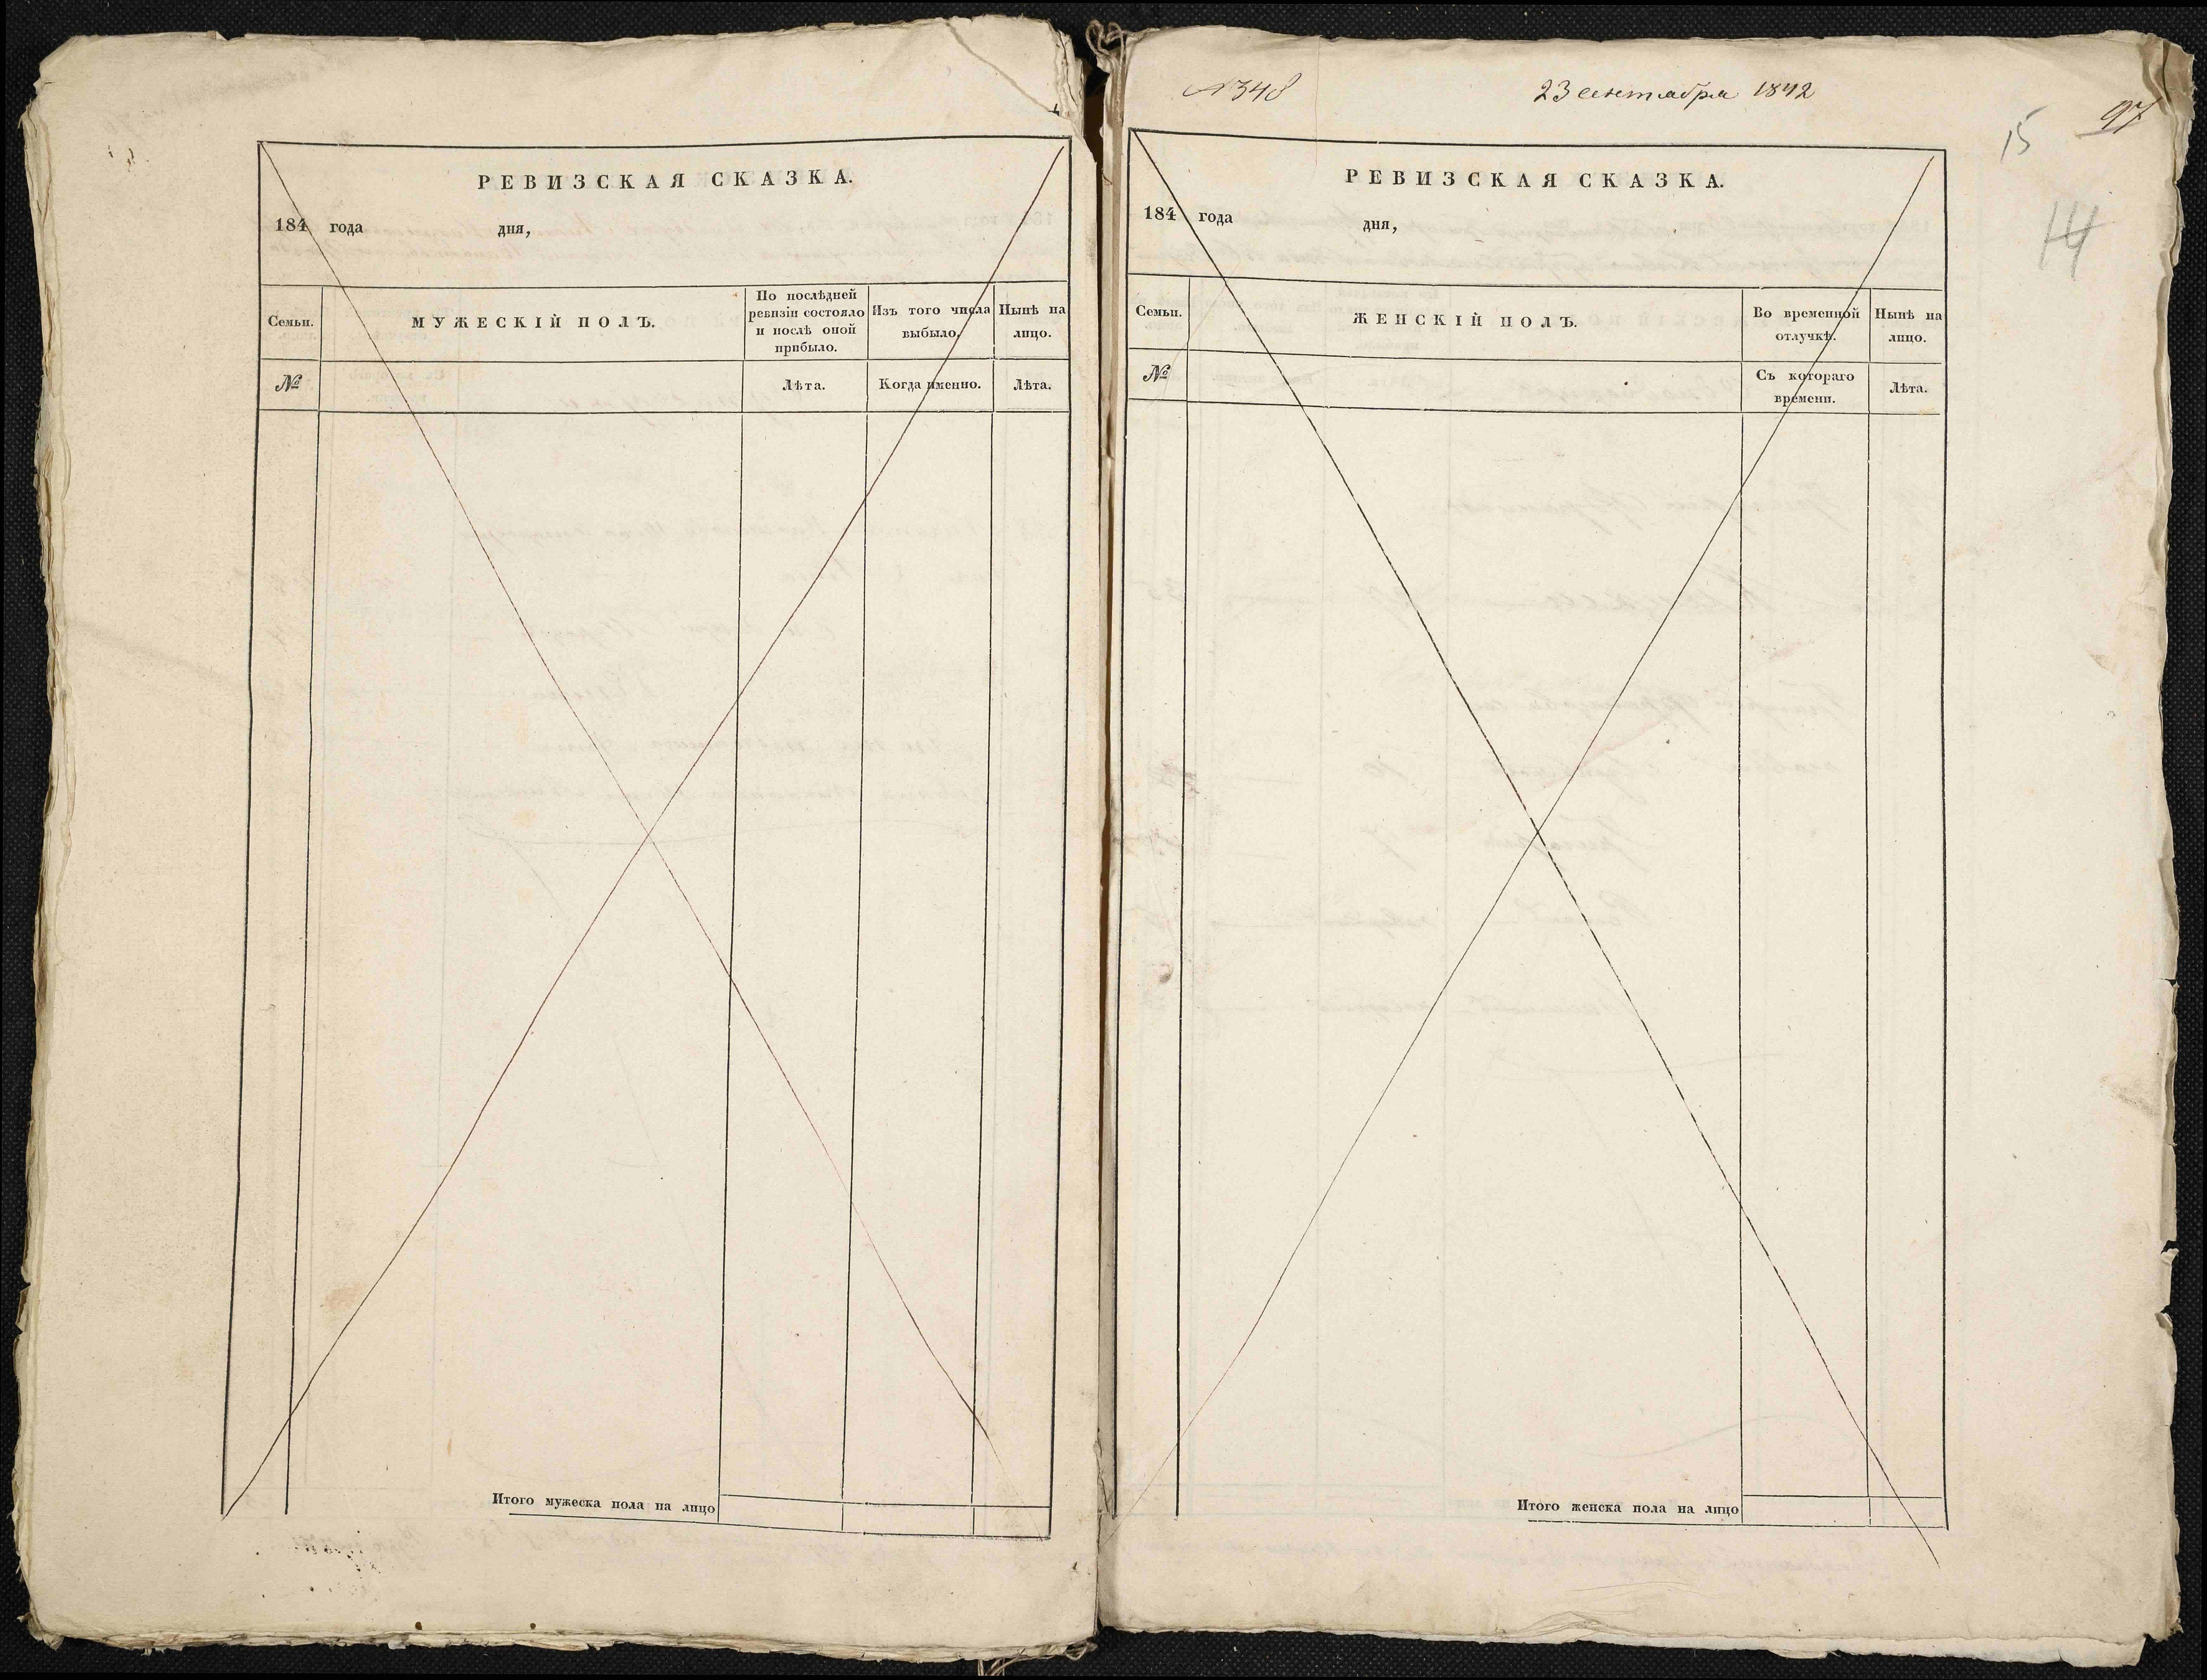 РЕВИЗСКАЯ СКАЗКА.
184 года дня,
Семьи.
МУЖЕСКІЙ ПОЛЪ.
По послѣдней
ревизіи состояло
и послѣ оной
прибыло.
Изъ того числа
выбыло.
Нынѣ на
лицо.
№
Лѣта.
Когда именно.
Лѣта.
Итого мужеска пола на лицо
№ 348
23 сентября 1842
97
15
14
РЕВИЗСКАЯ СКАЗКА.
184 года дня,
Семьи.
ЖЕНСКІЙ ПОЛЪ.
Во временной
отлучкѣ.
Нынѣ на
лицо.
№
Съ котораго
времени.
Лѣта.
Итого женска пола на лицо